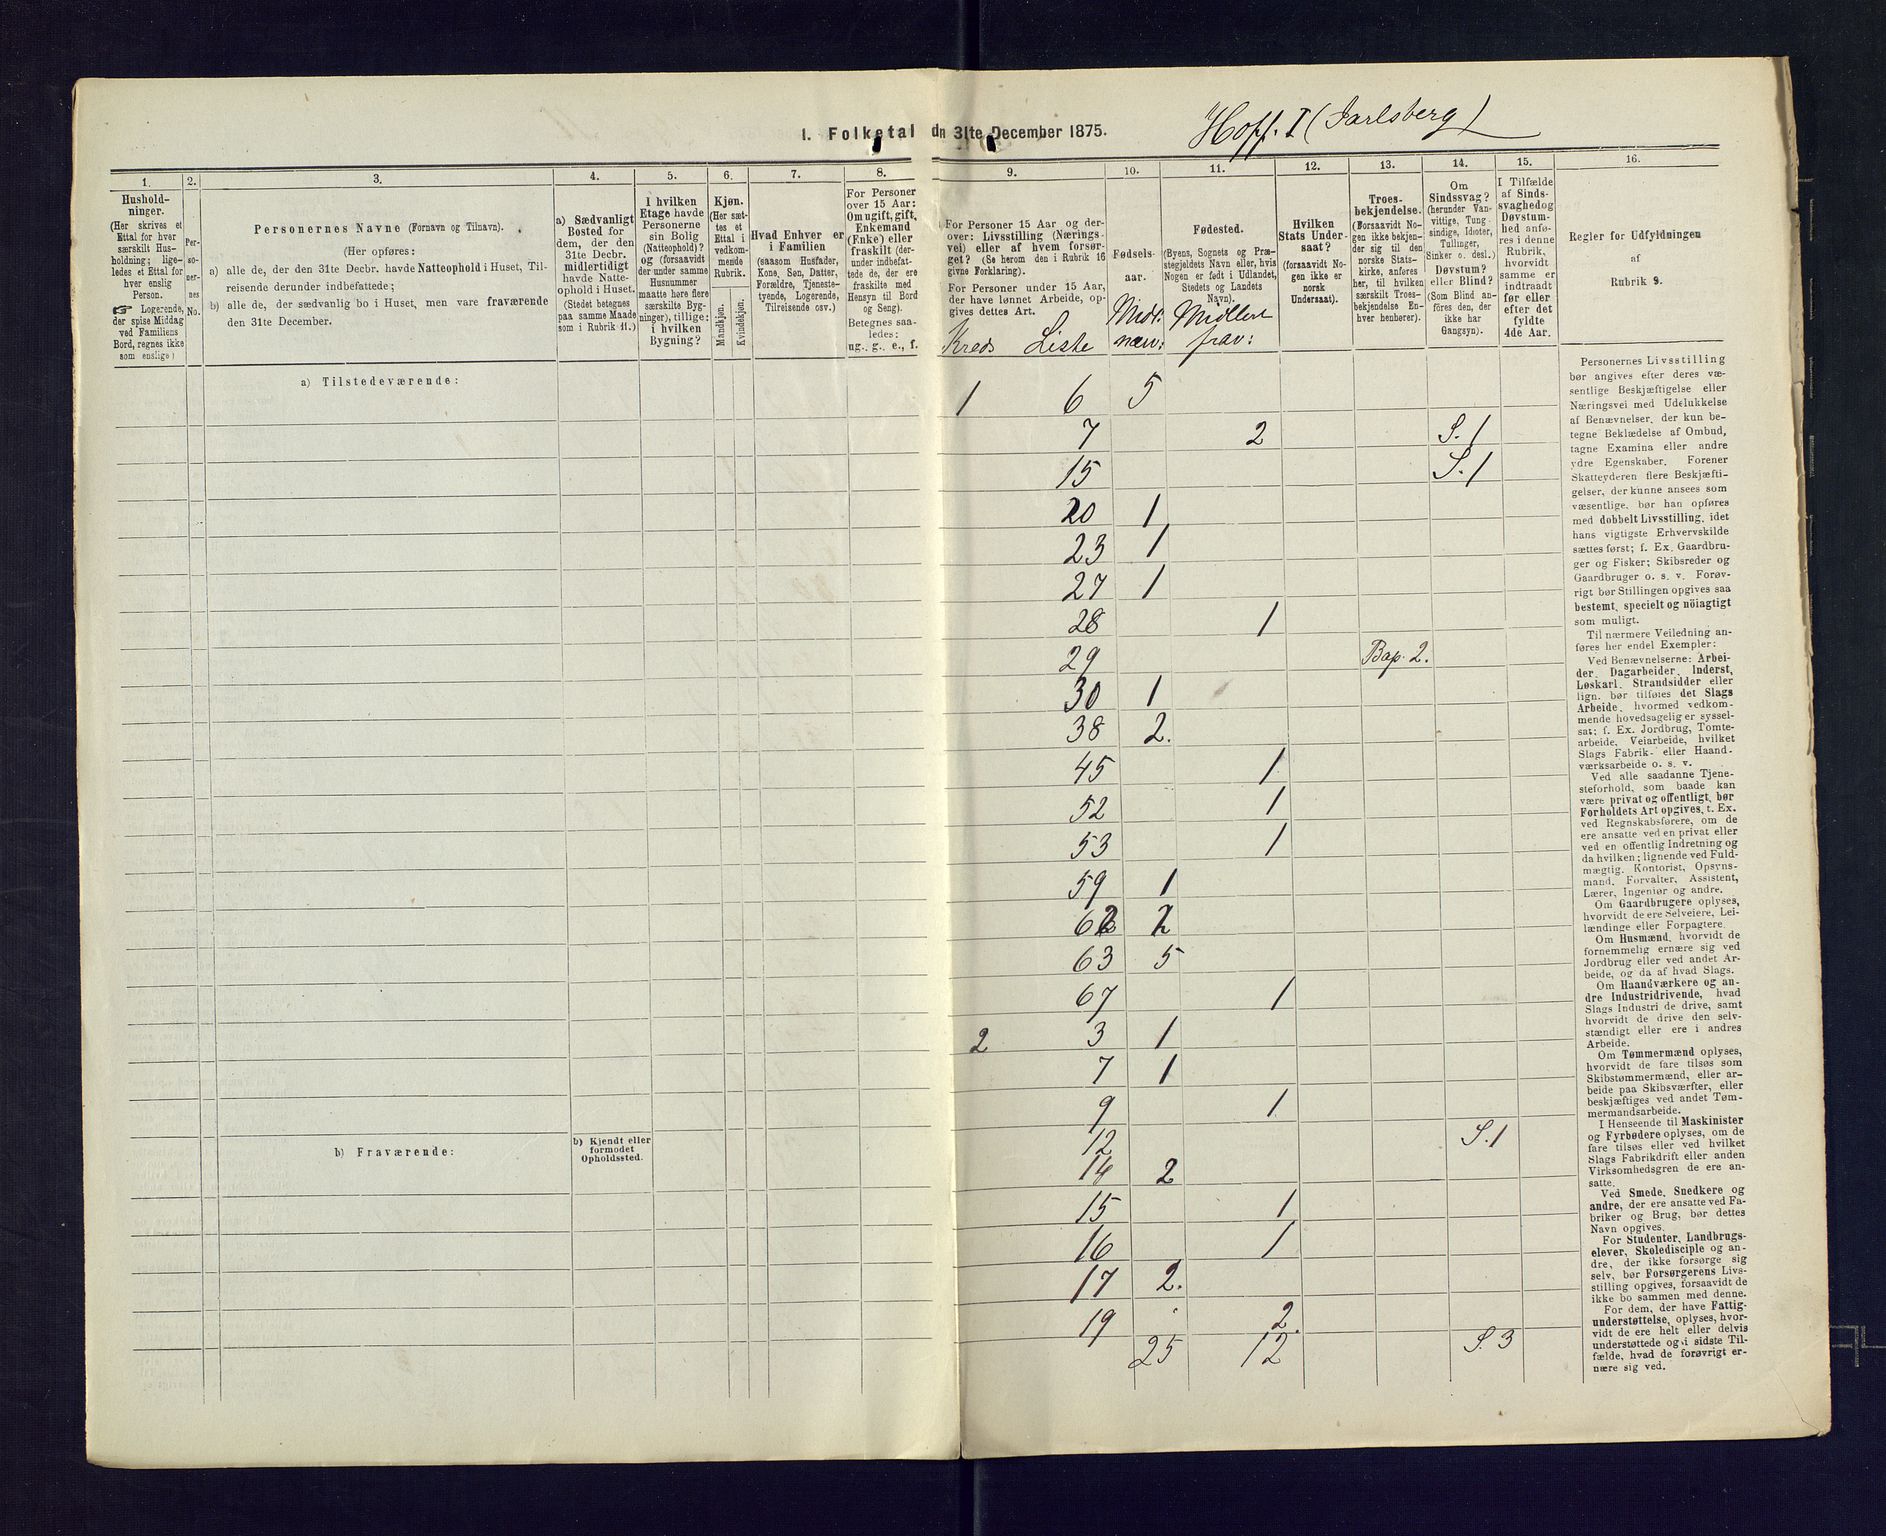 I. Folketal dn 31te December 1875.
Hoff. I (Jarlsberg)
1.
Hushold-
ninger.
(Her skrives et
Ettal for hver
særskilt Hus-
holdning; lige-
ledes et Ettal for
hver enslig
Person.
☞ Logerende,
der spise Middag
ved Familiens
Bord, regnes ikke
som enslige)
2.
Per-
so-
ner-
nes
No.
3.
Personernes Navne (Fornavn og Tilnavn).
(Her opføres:
a) alle de, der den 31te Decbr. havde Natteophold i Huset, Til-
reisende derunder indbefattede;
b) alle de, der sædvanlig bo i Huset, men vare fraværende
den 31te December.
4.
a) Sædvanligt
Bosted for
dem, der den
31te Decbr.
midlertidigt
havde Natte-
ophold i Huset.
(Stedet betegnes
paa samme Maade
som i Rubrik 11.)
5.
I hvilken
Etage havde
Personerne
sin Bolig
(Natteophold)?
og (forsaavidt
der under samme
Husnummer
maatte høre flere
særskilte Byg-
ninger), tillige:
i hvilken
Bygning?
6.
Kjøn.
(Her sæt-
tes et
Ettal i
vedkom-
mende
Rubrik.
Mandkjøn.
Kvindekjøn.
7.
Hvad Enhver er
i Familien
(saasom Husfader,
Kone, Søn, Datter,
Forældre, Tjeneste-
tyende, Logerende,
Tilreisende osv.)
8.
For Personer
over 15 Aar:
Om ugift, gift,
Enkemand
(Enke) eller
fraskilt (der-
under indbefat-
tede de, der ere
fraskilte med
Hensyn til Bord
og Seng).
Betegnes saa-
ledes:
ug., g., e., f.
9.
For Personer 15 Aar og der-
over: Livsstilling (Nærings-
vei) eller af hvem forsør-
get? (Se herom den i Rubrik 16
givne Forklaring).
For Personer under 15 Aar,
der have lønnet Arbeide, op-
gives dettes Art.
Kreds Liste
10.
Fødsels-
aar.
Midl.
nærv:
11.
Fødested.
(Byens, Sognets og Præ-
stegjeldets Navn eller, hvis
Nogen er født i Udlandet,
Stedets og Landets
Navn).
Midlert
frav:
12.
Hvilken
Stats Under-
saat?
(forsaavidt No-
gen ikke er
norsk
Undersaat).
13.
Troes-
bekjendelse.
(Forsaavidt No-
gen ikke bekjen-
der sig til den
norske Stats-
kirke, anføres
her, til hvilken
særskilt Troes-
bekjendelse En-
hver henhører).
14.
Om
Sindssvag?
(herunder Van-
vittige, Tung-
sindige, Idioter,
Tullinger,
Sinker o. desl.)
Døvstum?
eller Blind?
(Som Blind an-
føres den, der
ikke har
Gangsyn).
15.
I Tilfælde
af Sinds-
svaghed og
Døvstum-
hed anfø-
res i denne
Rubrik,
hvorvidt
samme er
indtraadt
før eller
efter det
fyldte
4de Aar.
16.
Regler for Udfyldningen
af
Rubrik 9.
a) Tilstedeværende:
1 6 5
7 2 S. 1
15 S. 1
20 1
23 1
27 1
28 1
29 Bap. 2.
30 1
38 2.
45 1
52 1
53 1
59 1
62 2
63 5
67 1
2 3 1
7 1
9 1
12 S. 1
b) Fraværende:
b) Kjendt eller
formodet
Opholdssted.
14 2
15 1
16 1
17 2.
19 2.
25 12 S. 3
Personernes Livsstilling
bør angives efter deres væ-
sentlige Beskjæftigelse eller
Næringsvei med Udelukkelse
af Benævnelser, der kun be-
tegne Beklædelse af Ombud,
tagne Examina eller andre
ydre Egenskaber. Forener
Skatteyderen flere Beskjæfti-
gelser, der kunne ansees som
væsentlige, bør han opføres
med dobbelt Livsstilling, idet
hans vigtigste Erhvervskilde
sættes først; f. Ex. Gaardbru-
ger og Fisker; Skibsreder og
Gaardbruger o. s. v. Forøv-
rigt bør Stillingen opgives saa
bestemt, specielt og nöiagtigt
som muligt.
Til nærmere Veiledning an-
føres her endel Exempler:
Ved Benævnelserne: Arbei-
der, Dagarbeider, Inderst,
Løskarl, Strandsidder eller
lign. bør tilføies det Slags
Arbeide, hvormed vedkom-
mende hovedsagelig er syssel-
sat; f. Ex. Jordbrug, Tomte-
arbeide, Veiarbeide, hvilket
Slags Fabrik- eller Haand-
værksarbeide o. s. v.
Ved alle saadanne Tjene-
steforhold, som baade kan
være privat og offentligt, bør
Forholdets Art opgives, t. Ex.
ved Regnskabsførere, om de
ere ansatte ved en privat eller
ved en offentlig Indretning og
da hvilken; lignende ved Fuld-
mægtig, Kontorist, Opsyns-
mand, Forvalter, Assistent,
Lærer, Ingeniør og andre.
Om Gaardbrugere oplyses,
hvorvidt de ere Selveiere, Lei-
lændinge eller Forpagtere.
Om Husmænd, hvorvidt de
fornemmelig ernære sig ved
Jordbrug eller ved andet Ar-
beide, og da af hvad Slags.
Om Haandværkere og an-
dre Industridrivende, hvad
Slags Industri de drive, samt
hvorvidt de drive den selv-
stændigt eller ere i andres
Arbeide.
Om Tømmermænd oplyses,
hvorvidt de fare tilsøs som
Skibstømmermænd, eller ar-
beide paa Skibsværfter, eller
beskjæftiges ved andet Tøm-
mermandsarbeide.
I Henseende til Maskinister
og Fyrbødere oplyses, om de
fare tilsøs eller ved hvilket
Slags Fabrikdrift eller anden
Virksomhedsgren de ere an-
satte.
Ved Smede, Snedkere og
andre, der ere ansatte ved Fa-
briker og Brug, bør dettes
Navn opgives.
For Studenter, Landbrugs-
elever, Skoledisciple og an-
dre, der ikke forsørge sig
selv, bør Forsørgerens Livs-
stilling opgives, forsaavidt de
ikke bo sammen med denne.
For dem, der have Fattig-
understøttelse, oplyses, hvor-
vidt de ere helt eller delvis
understøttede og i sidste Til-
fælde, hvad de forøvrigt er-
nære sig ved.